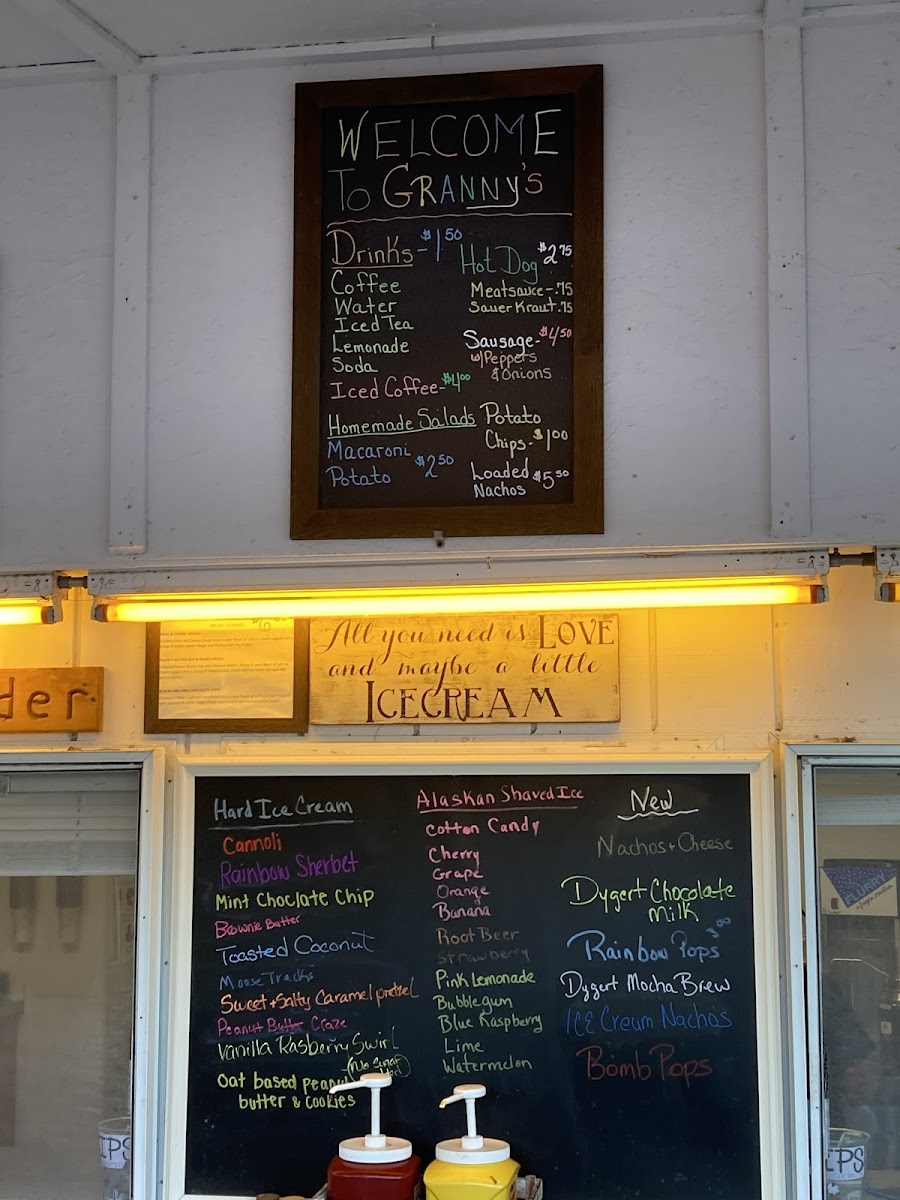 WELCOME
To GRANNY'S
Drinks - $1.50
Coffee
Water
Iced Tea
Lemonade
Soda
Iced Coffee - $4.00
Homemade Salads
Macaroni
Potato $2.50
Hot Dog $2.75
Meatsauce - .75
Sauer Kraut .75
Sausage - $4.50
w/Peppers
& Onions
Potato
Chips - $1.00
Loaded
Nachos $5.50
All you need is LOVE
and maybe a little
ICECREAM
der
Hard Ice Cream
Cannoli
Rainbow Sherbet
Mint Choclate Chip
Brownie Batter
Toasted Coconut
Moose Tracks
Sweet + Salty Caramel pretzel
Peanut Butter Craze
Vanilla Rasberry Swirl
(No Sugar
Oat based peanut
butter & cookies
Alaskan Shaved Ice
Cotton Candy
Cherry
Grape
Orange
Banana
Root Beer
Strawberry
Pink Lemonade
Bubblegum
Blue Raspberry
Lime
Watermelon
New
Nachos + Cheese
Dygert Chocolate
Milk
Rainbow Pops
Dygert Mocha Brew
ICE Cream Nachos
Bomb Pops
FLURRY
IPS
IPS